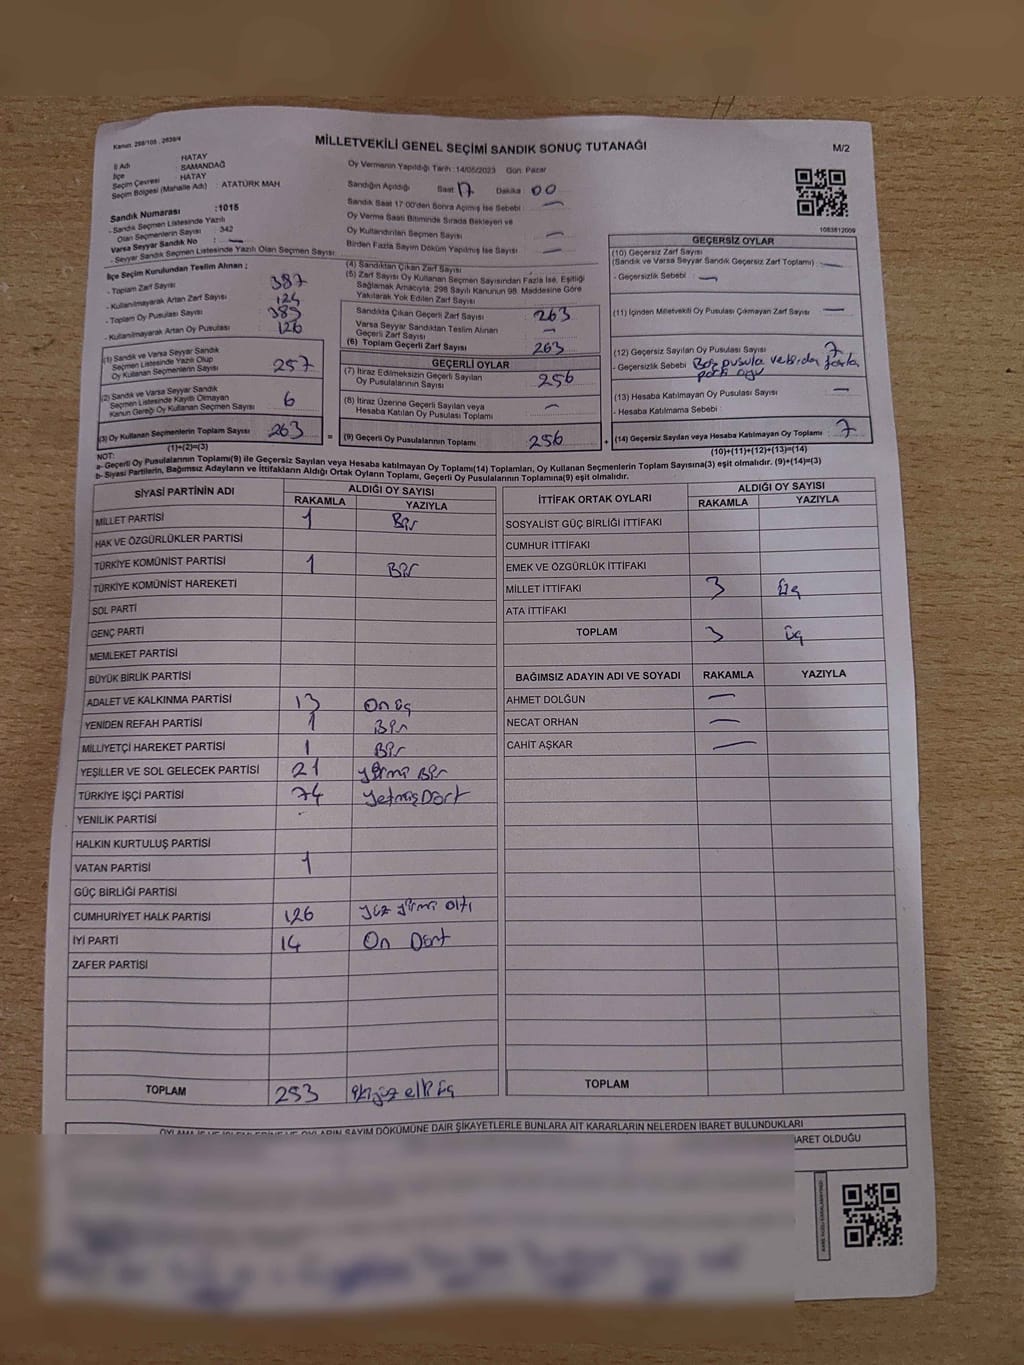 Kanun. 298/105 . 2839/4
MİLLETVEKİLİ GENEL SEÇİMİ SANDIK SONUÇ TUTANAĞI
M/2
İl Adı : HATAY
İlçe : SAMANDAĞ
Seçim Çevresi : HATAY
Seçim Bölgesi (Mahalle Adı) : ATATÜRK MAH
Sandık Numarası : 1015
- Sandık Seçmen Listesinde Yazılı
Olan Seçmenlerin Sayısı : 342
Varsa Seyyar Sandık No : —
- Seyyar Sandık Seçmen Listesinde Yazılı Olan Seçmen Sayısı
Oy Vermenin Yapıldığı Tarih : 14/05/2023 Gün: Pazar
Sandığın Açıldığı Saat 17 Dakika 00
Sandık Saat 17:00'den Sonra Açılmış İse Sebebi : —
Oy Verme Saati Bitiminde Sırada Bekleyen ve
Oy Kullandırılan Seçmen Sayısı : —
Birden Fazla Sayım Döküm Yapılmış İse Sayısı : —
1083812009
İlçe Seçim Kurulundan Teslim Alınan ;
- Toplam Zarf Sayısı : 387
- Kullanılmayarak Artan Zarf Sayısı : 124
- Toplam Oy Pusulası Sayısı : 389
- Kullanılmayarak Artan Oy Pusulası : 126
(1) Sandık ve Varsa Seyyar Sandık
Seçmen Listesinde Yazılı Olup
Oy Kullanan Seçmenlerin Sayısı : 257
(2) Sandık ve Varsa Seyyar Sandık
Seçmen Listesinde Kayıtlı Olmayan
Kanun Gereği Oy Kullanan Seçmen Sayısı : 6
(3) Oy Kullanan Seçmenlerin Toplam Sayısı : 263
(1)+(2)=(3)
(4) Sandıktan Çıkan Zarf Sayısı
(5) Zarf Sayısı Oy Kullanan Seçmen Sayısından Fazla İse, Eşitliği
Sağlamak Amacıyla; 298 Sayılı Kanunun 98. Maddesine Göre
Yakılarak Yok Edilen Zarf Sayısı
Sandıkta Çıkan Geçerli Zarf Sayısı : 263
Varsa Seyyar Sandıktan Teslim Alınan
Geçerli Zarf Sayısı : —
(6) Toplam Geçerli Zarf Sayısı : 263
GEÇERLİ OYLAR
(7) İtiraz Edilmeksizin Geçerli Sayılan
Oy Pusulalarının Sayısı : 256
(8) İtiraz Üzerine Geçerli Sayılan veya
Hesaba Katılan Oy Pusulası Toplamı : —
= (9) Geçerli Oy Pusulalarının Toplamı : 256
GEÇERSİZ OYLAR
(10) Geçersiz Zarf Sayısı
(Sandık ve Varsa Seyyar Sandık Geçersiz Zarf Toplamı) : —
- Geçersizlik Sebebi : —
(11) İçinden Milletvekili Oy Pusulası Çıkmayan Zarf Sayısı : —
(12) Geçersiz Sayılan Oy Pusulası Sayısı : 7
- Geçersizlik Sebebi : Boş pusula fazla
(13) Hesaba Katılmayan Oy Pusulası Sayısı : —
- Hesaba Katılmama Sebebi :
+ (14) Geçersiz Sayılan veya Hesaba Katılmayan Oy Toplamı : 7
(10)+(11)+(12)+(13)=(14)
NOT:
a- Geçerli Oy Pusulalarının Toplamı(9) ile Geçersiz Sayılan veya Hesaba katılmayan Oy Toplamı(14) Toplamları, Oy Kullanan Seçmenlerin Toplam Sayısına(3) eşit olmalıdır. (9)+(14)=(3)
b- Siyasi Partilerin, Bağımsız Adayların ve İttifakların Aldığı Ortak Oyların Toplamı, Geçerli Oy Pusulalarının Toplamına(9) eşit olmalıdır.
SİYASİ PARTİNİN ADI ALDIĞI OY SAYISI
RAKAMLA YAZIYLA
MİLLET PARTİSİ 1 Bir
HAK VE ÖZGÜRLÜKLER PARTİSİ
TÜRKİYE KOMÜNİST PARTİSİ 1 Bir
TÜRKİYE KOMÜNİST HAREKETİ
SOL PARTİ
GENÇ PARTİ
MEMLEKET PARTİSİ
BÜYÜK BİRLİK PARTİSİ
ADALET VE KALKINMA PARTİSİ 13 On üç
YENİDEN REFAH PARTİSİ 1 Bir
MİLLİYETÇİ HAREKET PARTİSİ 1 Bir
YEŞİLLER VE SOL GELECEK PARTİSİ 21 yirmi Bir
TÜRKİYE İŞÇİ PARTİSİ 74 yetmiş Dört
YENİLİK PARTİSİ
HALKIN KURTULUŞ PARTİSİ
VATAN PARTİSİ 1
GÜÇ BİRLİĞİ PARTİSİ
CUMHURİYET HALK PARTİSİ 126 yüz yirmi altı
İYİ PARTİ 14 On Dört
ZAFER PARTİSİ
TOPLAM 253 iki yüz elli üç
İTTİFAK ORTAK OYLARI ALDIĞI OY SAYISI
RAKAMLA YAZIYLA
SOSYALİST GÜÇ BİRLİĞİ İTTİFAKI
CUMHUR İTTİFAKI
EMEK VE ÖZGÜRLÜK İTTİFAKI
MİLLET İTTİFAKI 3 üç
ATA İTTİFAKI
TOPLAM 3 üç
BAĞIMSIZ ADAYIN ADI VE SOYADI RAKAMLA YAZIYLA
AHMET DOLĞUN —
NECAT ORHAN —
CAHİT AŞKAR —
TOPLAM
OYLAMA İŞ VE İŞLEMLERİNE VE OYLARIN SAYIM DÖKÜMÜNE DAİR ŞİKAYETLERLE BUNLARA AİT KARARLARIN NELERDEN İBARET BULUNDUKLARI
İBARET OLDUĞU